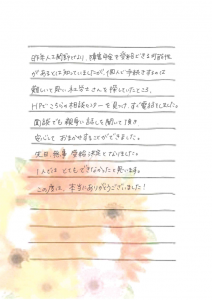 昨年人工関節になり、障害年金を受給できる可能性
があるとは知っていましたが、個人で手続きするのは
難しいと思い社労士さんを探していたところ、
HPでこちらの相談センターを見つけ、すぐ電話をしました。
面談でも親身に話しを聞いて頂き
安心しておまかせすることができました。
先日無事受給決定となりました。
1人ではとてもできなかったと思います。
この度は、本当にありがとうございました!